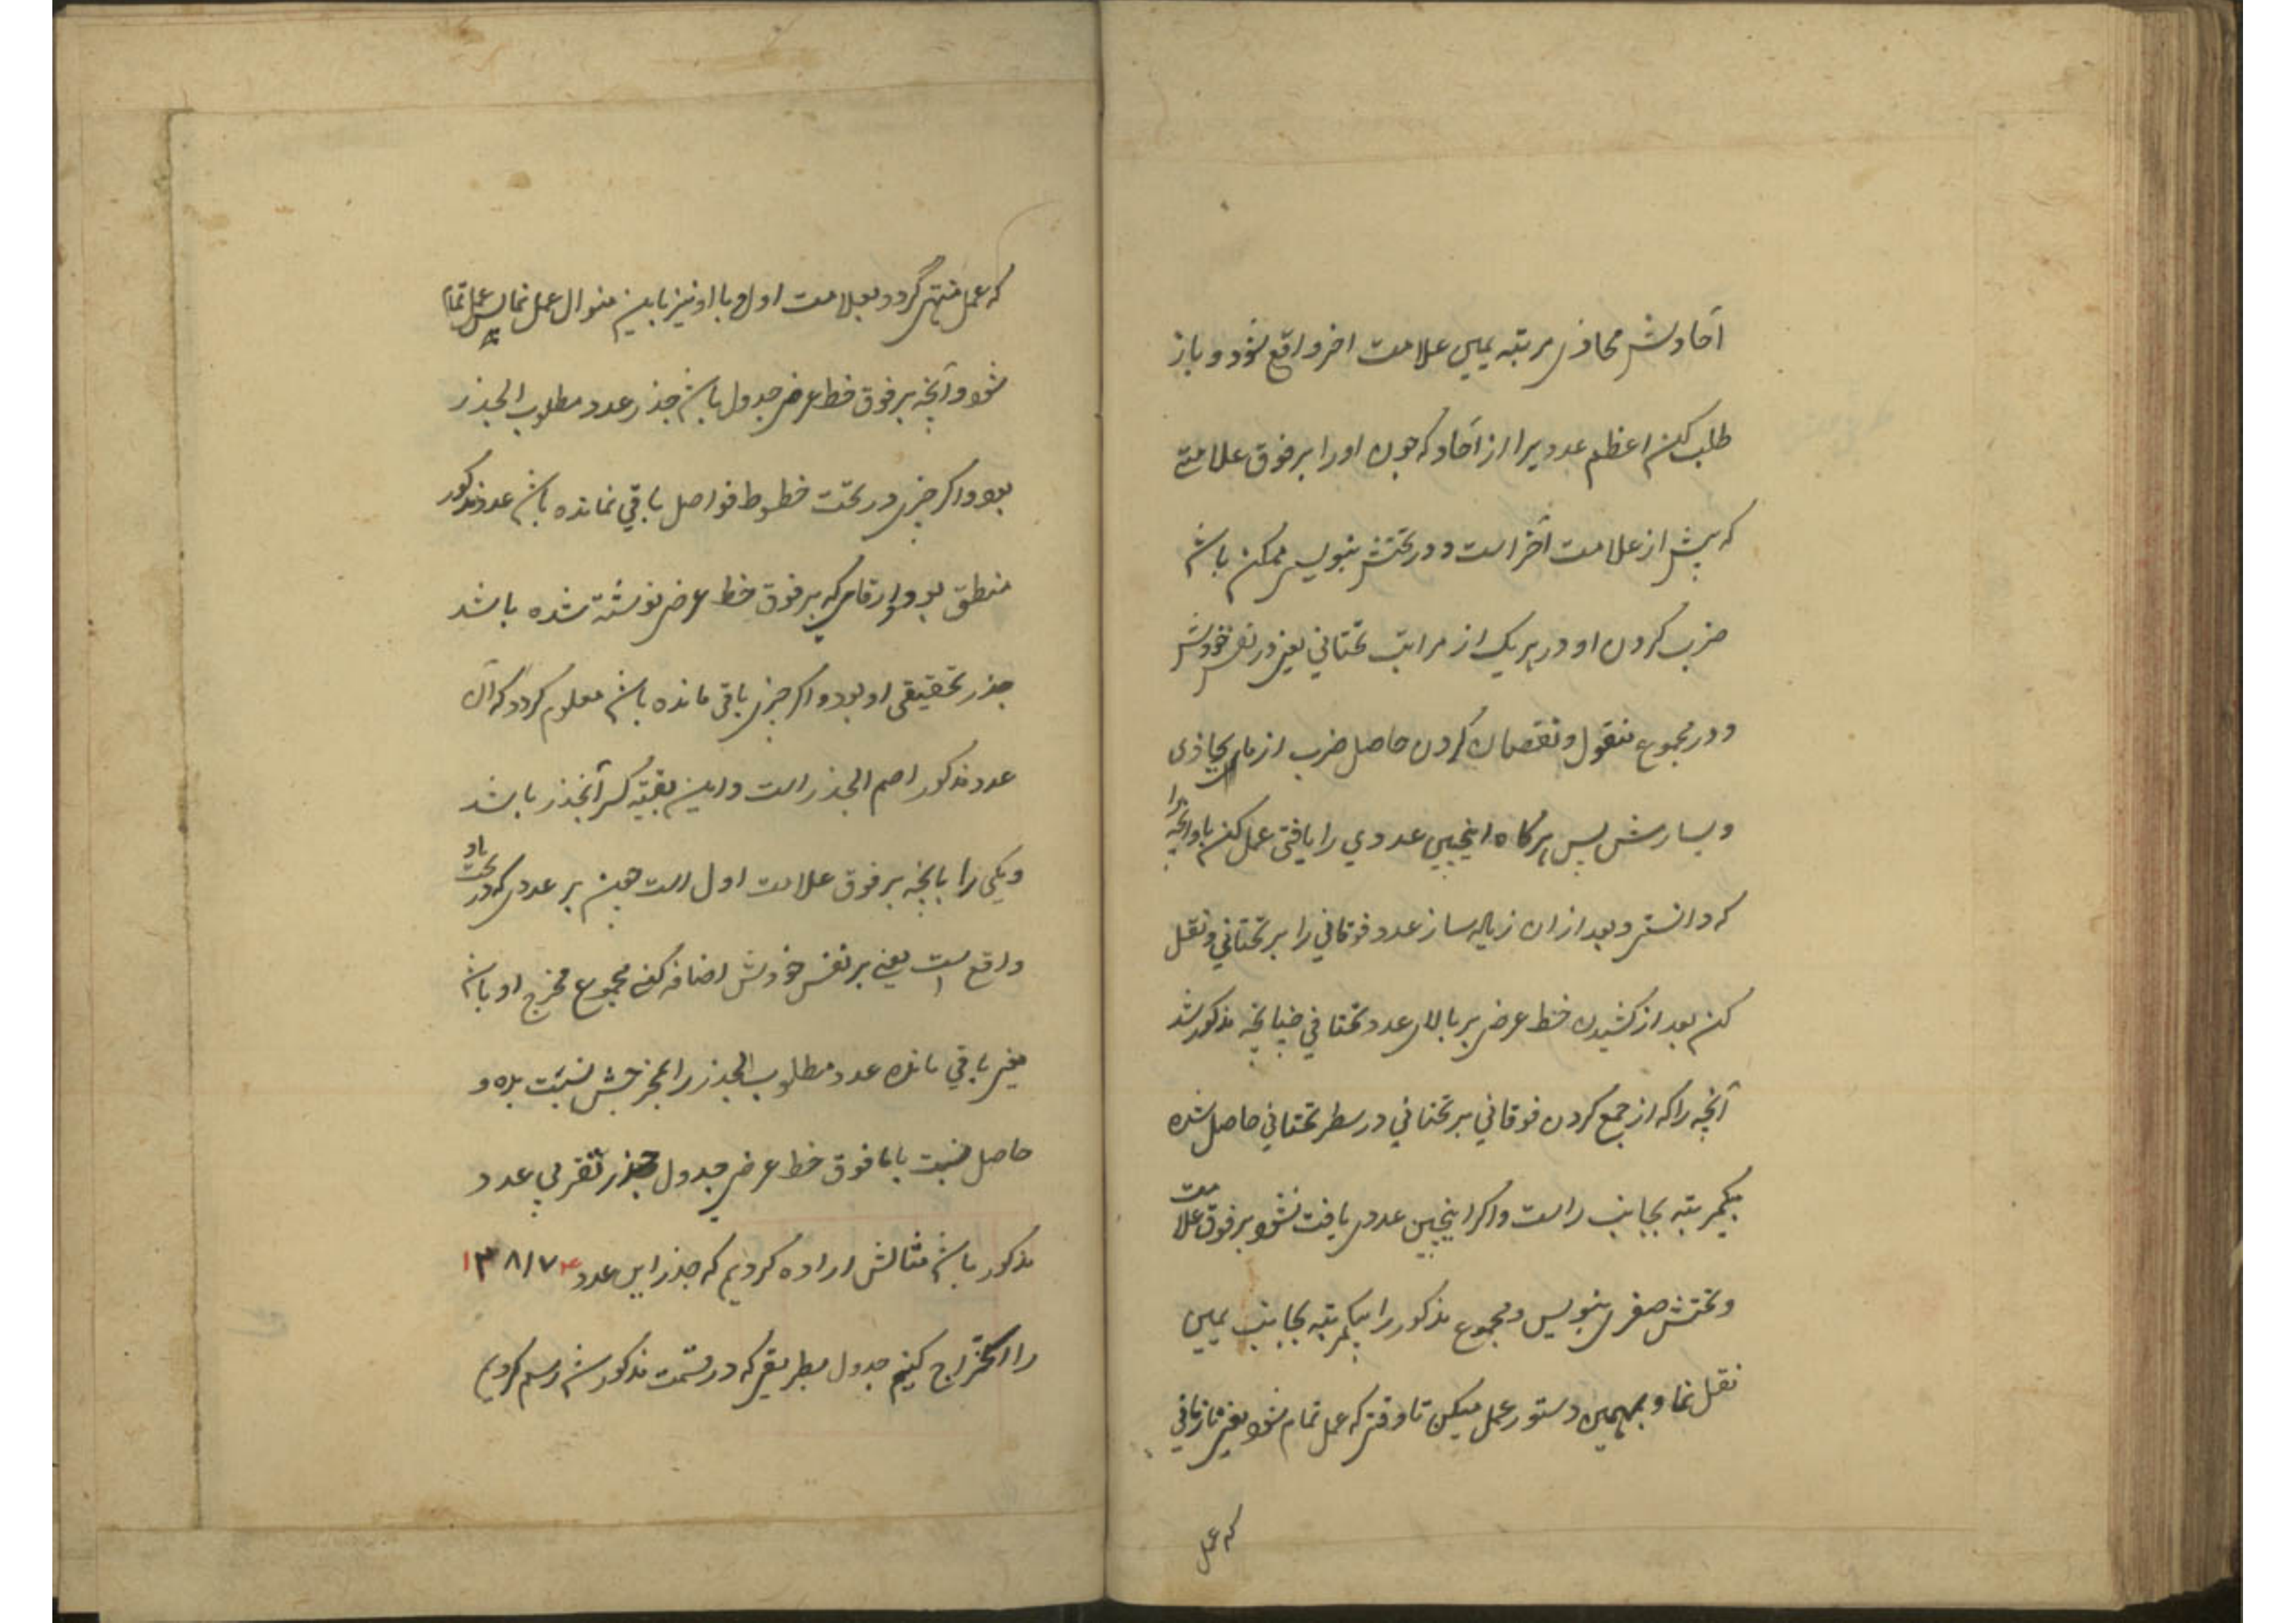 آحادش محاذی مرتبه یمین علامت اخر واقع شود و باز
طلب کن اعظم عددیرا از آحاد که چون او را بر فوق علامتی
که پیش از علامت آخر است و در تحتش بنویسی ممکن باشد
ضرب کردن او در هر یک از مراتب تحتانی یعنی در نفس خودش
و در مجموع منقول و نقصان کردن حاصل ضرب از مای محاذی
و یسارش پس هرگاه اینچنین عددی را یافتی عمل کن باو آنچه را
که دانستی و بعد از ان زیاده ساز عدد فوقانی را بر تحتانی و نقل
کن بعد از کشیدن خط عرضی بر بالای عدد تحتانی چنانچه مذکور شد
آنچه را که از جمع کردن فوقانی بر تحتانی در سطر تحتانی حاصل شده
بیکمرتبه بجانب راست و اکر اینچنین عددی یافت نشود بر فوق علامت
و تحتش صفری بنویس و مجموع مذکور را بیکمرتبه بجانب یمین
نقل نما و بهمین دستور عمل میکن تا وقتی که عمل تمام شود یعنی تا زمانی
که عمل
که عمل منتهی گردد بعلامت اول و با او نیز باین منوال عمل نما پس عمل تمام
شود و آنچه بر فوق خط عرضی جدول باشد جذر عدد مطلوب الجذر
بود و اکر چیزی در تحت خطوط فواصل باقی نمانده باشد عدد مذکور
منطق بود و ارقامی که بر فوق خط عرضی نوشته شده باشد
جذر تحقیقی او بود و اکر چیزی باقی مانده باشد معلوم کردد که آن
عدد مذکور اصم الجذر است و این بقیه کسر آنجذر باشد
و یکی را بانچه بر فوق علامت اول است همین بر عددی که در تحت او
واقع است یعنی بر نفس خودش اضافه کنی مجموع مخرج او باشد
یعنی باقی مانده عدد مطلوب الجذر را بمخرجش نسبت بده و
حاصل نسبت با ما فوق خط عرضی جدول جذر تقریبی عدد
مذکور باشد مثالش اراده کردیم که جذر این عدد ۱۳۸۱۷۴
را استخراج کنیم جدول بطریقی که در قسمت مذکور شد رسم کردیم